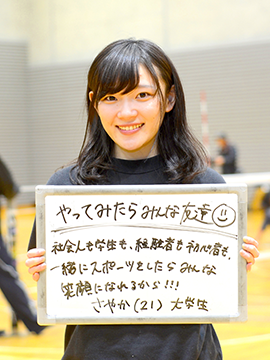 やってみたらみんな友達☺
社会人も学生も、経験者も初心者も、
一緒にスポーツをしたらみんな
笑顔になれるから!!!
さやか(21) 大学生